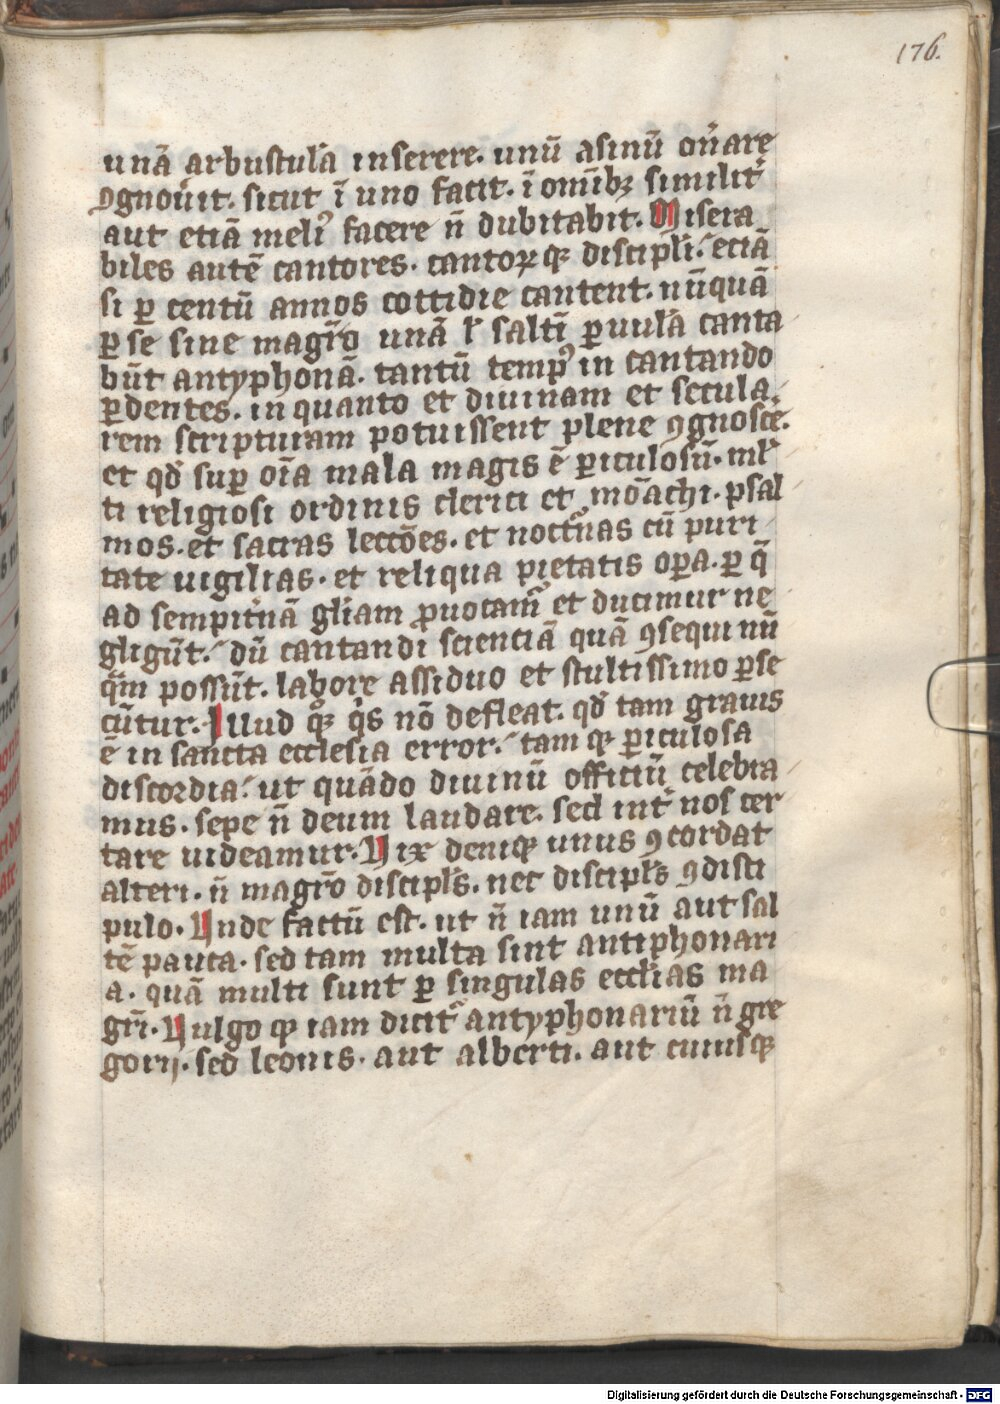 176.
unā arbustul'a inserere. unū asinū on̄are
ꝯgnou'it. sicut ī uno facit. ī omībꝫ similit'
aut etiā meli᾿ facere n̄ dubitabit. Misera
biles autē cantores. cantoꝝ qꝫ discipl'i. eciā
si ꝑ centū annos cottidie cantent. nūquā
ꝑ se sine magr̄o unā l' saltī ꝑuul'a canta
būt antyphonā. tantū temp᾿ in cantando
ꝑdentes. in quanto et diuinam et secula,
rem scripturam potuissent plene ꝯgnosce.
et qđ suꝑ oīa mala magis ē ꝑiculosū. ml'
ti religiosi ordinis clerici et mōachi. psal
mos. et sacras leccōes. et noct'nas cū puri
tate uigilias. et reliqua pietatis oꝑa. ꝑ q̄
ad sempit'nā gl'iam ꝓuocam᾿ et ducimur ne
gligūt. dū cantandi scienciā quā ꝯsequi nū
q̄m possūt. labore assiduo et stultissimo ꝑse
cūtur. Illud qͦꝫ q's nō defleat. qđ tam grauis
ē in sancta ecclesia error. tam qꝫ ꝑiculosa
discordia. ut quādo diuinū officiū celebra
mus. sepe n̄ deum laudare. sed int' nos cer
tare uideamur. Vix deniqꝫ unus ꝯcordat
alteri. n̄ magr̄o discipl's. nec discipl's ꝯdisci
pulo. Vnde factū est. ut n̄ iam unū aut sal
tē pauca. sed tam multa sint antiphonari
a. quā multi sunt ꝑ singulas eccl'ias ma
gr̄i. Vulgo qꝫ iam dicit' antyphonariū n̄ gre
gorij. sed leonis. aut alberti. aut cuiusqꝫ
Digitalisierung gefördert durch die Deutsche Forschungsgemeinschaft - DFG